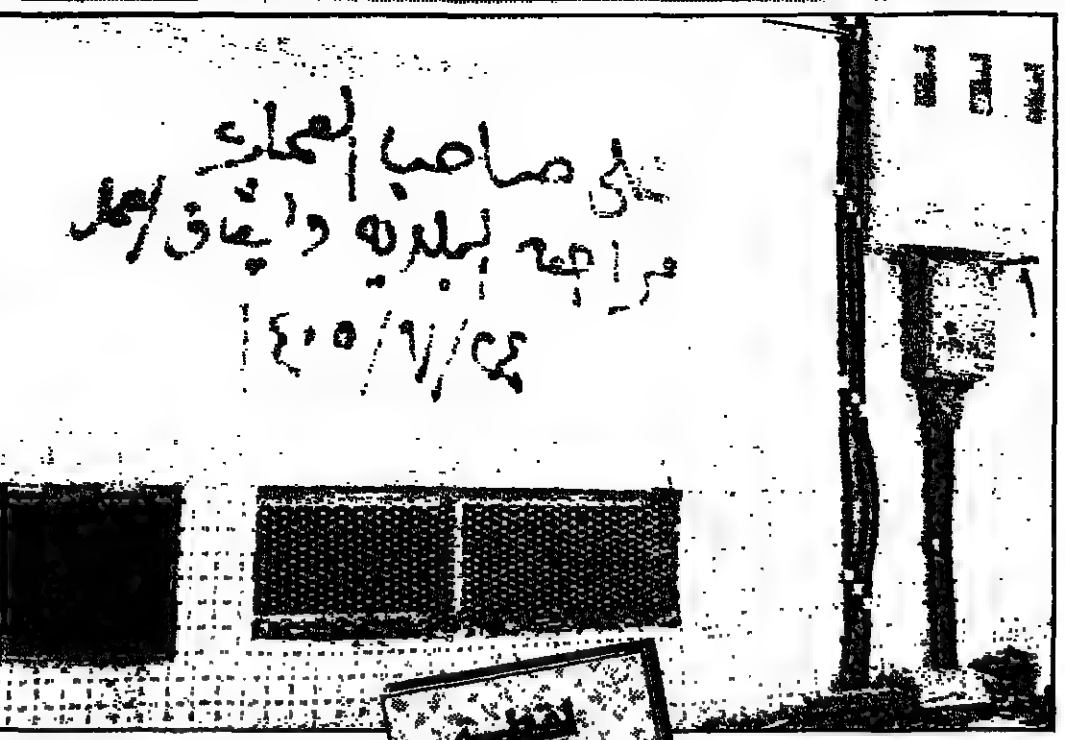 على صاحب العماره
مراجعه البلديه وايقاف العمل
٢٤/٩/١٤٠٥